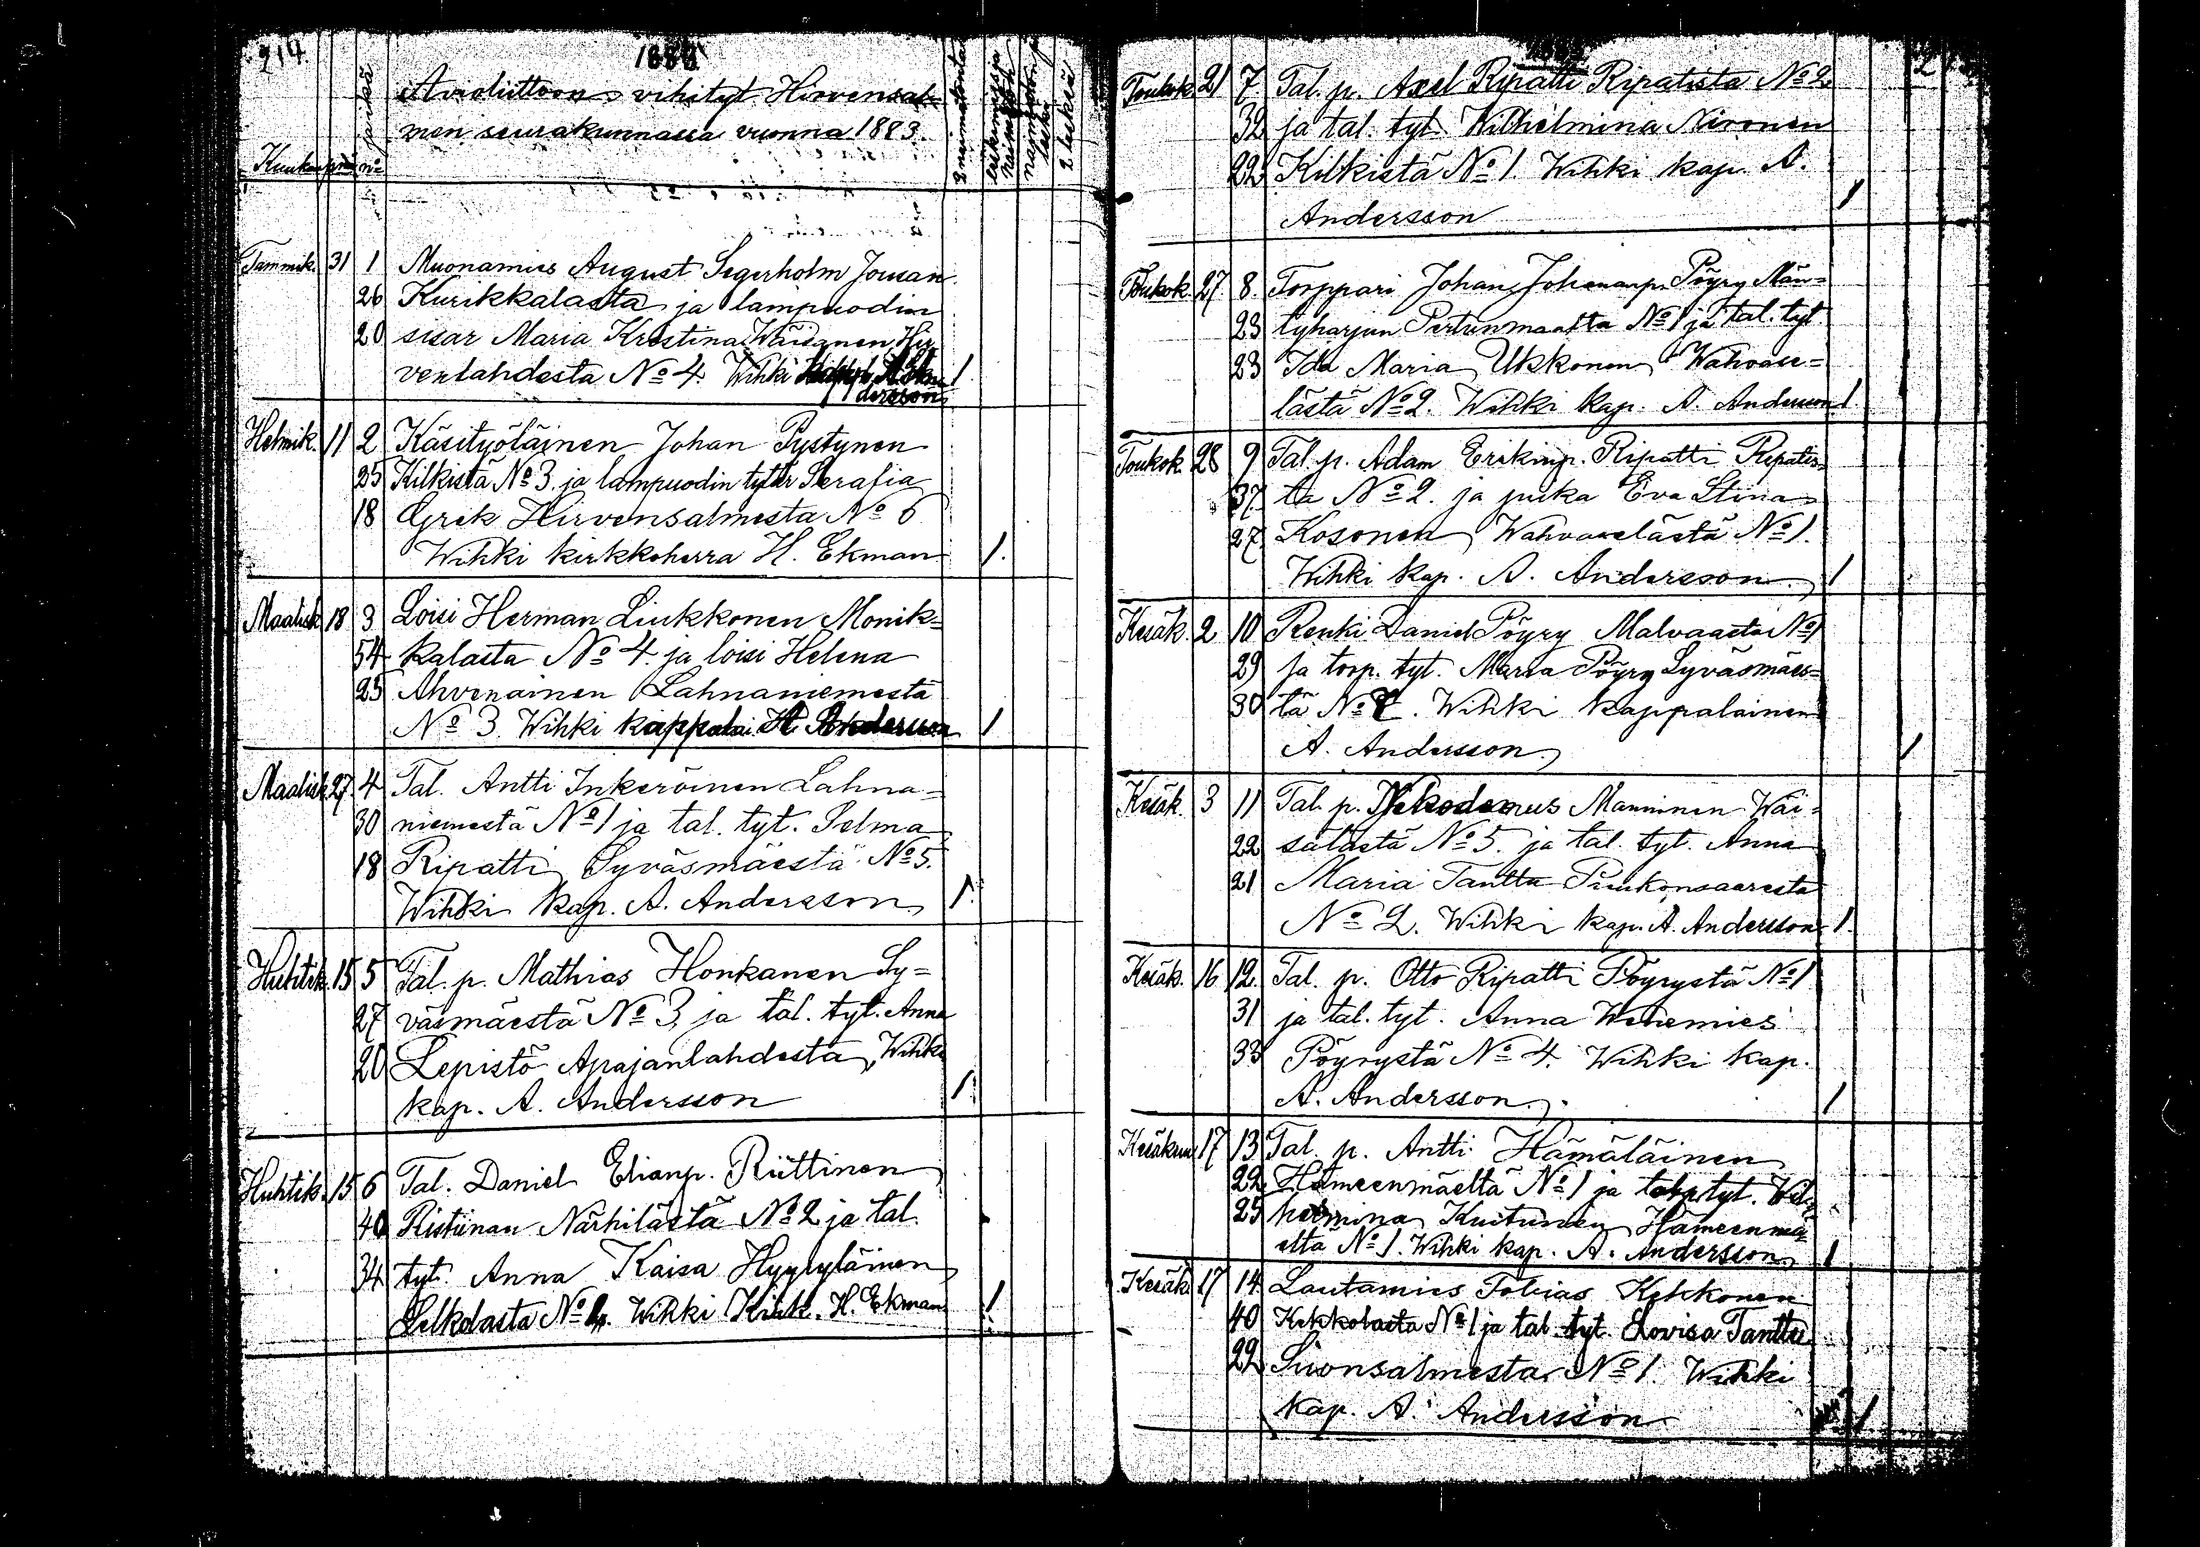 214
1883
Avioliittoon vihityt Hirvensal-
men seurakunnassa vuonna 1883.
Tammik. 31 1 Muonamies August Segerholm Jousan
26 Kurikkalasta ja lampuodin
20 sisar Maria Kristina Wäisänen Hir
venlahdesta No 4. Wihki
dersson 1
Helmik. 11 2 Käsityöläinen Johan Pystynen
25 Kilkistä No 3. ja lampuodin tytär Serafia
18 Grek Hirvensalmesta No 6
Wihki kirkkoherra H. Ekman 1.
Maalisk 18 3 Loisi Herman Liukkonen Monik=
54 kalasta No 4. ja loisi Helena
25 Ahvenainen Lahnaniemestä
No 3 Wihki kappalai. A. Andersson 1
Maalisk. 27. 4 Tal. Antti Inkeröinen Lahna=
30 niemestä No 1 ja tal. tyt. Selma
18 Ripatti Syväsmäestä No 5.
Wihki kap. A. Andersson 1.
Huhtik. 15 5 Tal. p. Mathias Honkanen Sy=
27 väsmäestä No 3, ja tal. tyt. Anna
20 Lepistö Apajanlahdesta, Wihki
kap. A. Andersson 1.
Huhtik. 15 6 Tal. Daniel Elianp. Riittinen
40 Ristiinan Närhilästä No 2 ja tal.
34 tyt. Anna Kaisa Hyyryläinen
Selkolasta No Wihki Kirkk. H. Ekman 1
Toukok. 21 7 Tal. p. Axel Ripatti Ripatista No 2
32 ja tal. tyt. Wilhelmina Nironen
22 Kilkistä No 1. Wihki kap. A.
Andersson 1
Toukok. 27. 8. Torppari Johan Johananp. Pöyry Män=
23 tyharjun Pertunmaalta No 1 ja tal. tyt.
23 Ida Maria Ukkonen Wahvase=
lästä No 2. Wihki kap. A. Andersson 1
Toukok. 28 9 Tal. p. Adam Erikinp. Ripatti Ripatis=
37. ta No 2. ja piika Eva Stina
27. Kosonen Wahvaselästä No 1.
Wihki kap. A. Andersson. 1
Kesäk. 2 10 Renki Daniel Pöyry Malvaasta No 1
29 ja torp. tyt. Maria Pöyry Syväsmäes=
30 tä No Wihki kappalainen
A. Andersson 1
Kesäk. 3 11 Tal. p. Nikodemus Manninen Wäi=
22 sälästä No 5. ja tal. tyt. Anna
21 Maria Tanttu Puukonsaaresta
No 2. Wihki kap. A. Andersson 1.
Kesäk. 16 12. Tal. p. Otto Ripatti Pöyrystä No 1
31 ja tal. tyt. Anna Wenemies
33 Pöyrystä No 4. Wihki kap.
A. Andersson. 1
Kesäkuu 17 13 Tal. p. Antti Hämäläinen
22 Hämeenmäeltä No 1 ja torp. tyt. Wil
25 helmina Kuitunen Hämeenmä
eltä No 1. Wihki kap. A. Andersson 1
Kesäk 17 14 Lautamies Tobias Kekkonen
40 Kekkolasta No 1 ja tal. tyt. Lovisa Tanttu
22 Suonsalmesta No 1. Wihki
kap. A. Andersson 1